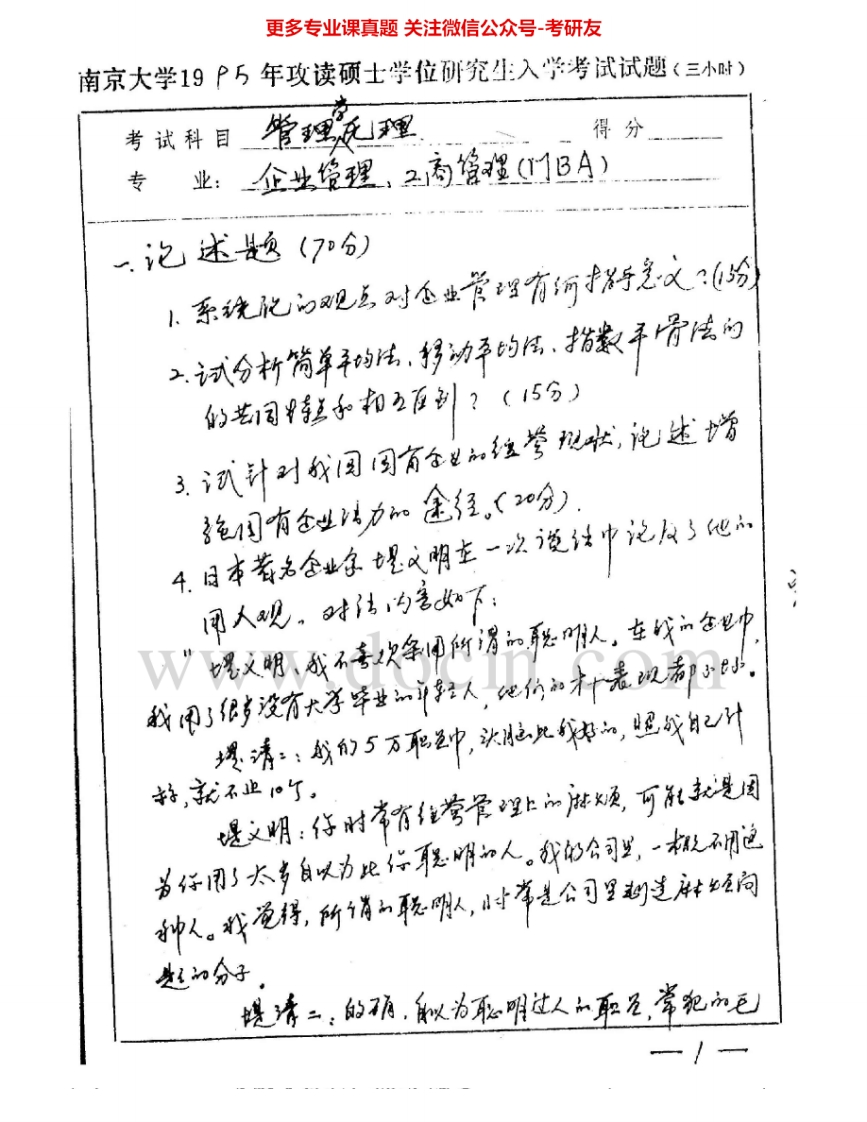 更多专业课真题 关注微信公众号-考研友
南京大学1995年攻读硕士学位研究生入学考试试题(三小时)
考试科目 管理学原理 得分
专 业: 企业管理、工商管理(MBA)
一.论述题 (70分)
1. 系统论的观点对企业管理有何指导意义?(15分)
2. 试分析简单平均法、移动平均法、指数平滑法的
的共同特点和相互区别?(15分)
3. 试针对我国国有企业的经营现状,论述增
强国有企业活力的途径。(20分).
4. 日本著名企业家堤义明在一次谈话中论及了他的
用人观。对话内容如下:
"堤义明:我不喜欢采用所谓的聪明人。在我的企业中,
我用了很多没有大学毕业的年轻人,他们的才干表现都不坏。
堤清二:我的5万职员中,头脑比我好的,照我自己计
称,就不止10个。
堤义明:你时常有经营管理上的麻烦,可能就是因
为你用了太多自以为比你聪明的人。我的公司里,一概不用这
种人。我觉得,所谓的聪明人,时常是公司里制造麻烦问
题的分子。
堤清二:的确,自以为聪明过人的职员,常犯的毛
—1—
www.docin.com